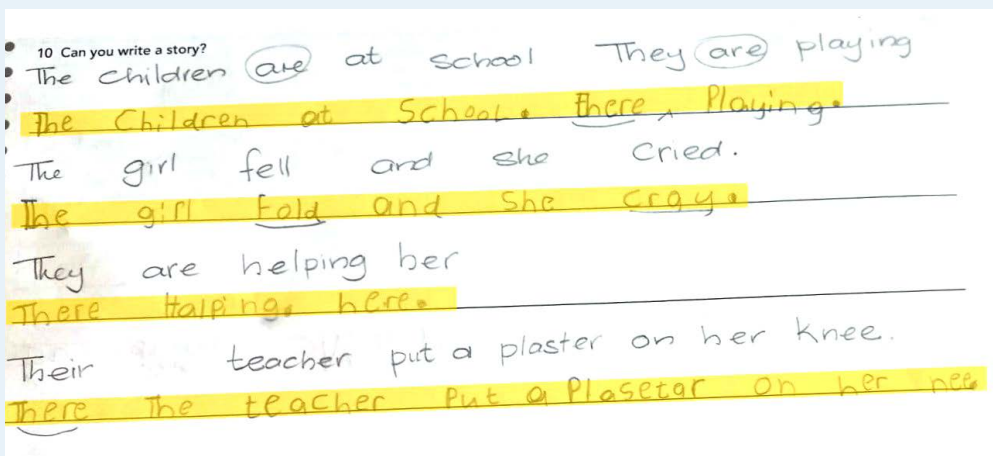 10 Can you write a story?
The children are at school They are playing
The Children at School. there ^ Playing.
The girl fell and she cried.
The girl Fold and She cray.
They are helping her
There Halping. here.
Their teacher put a plaster on her knee.
There The teacher Put a Plasetar on her nee.